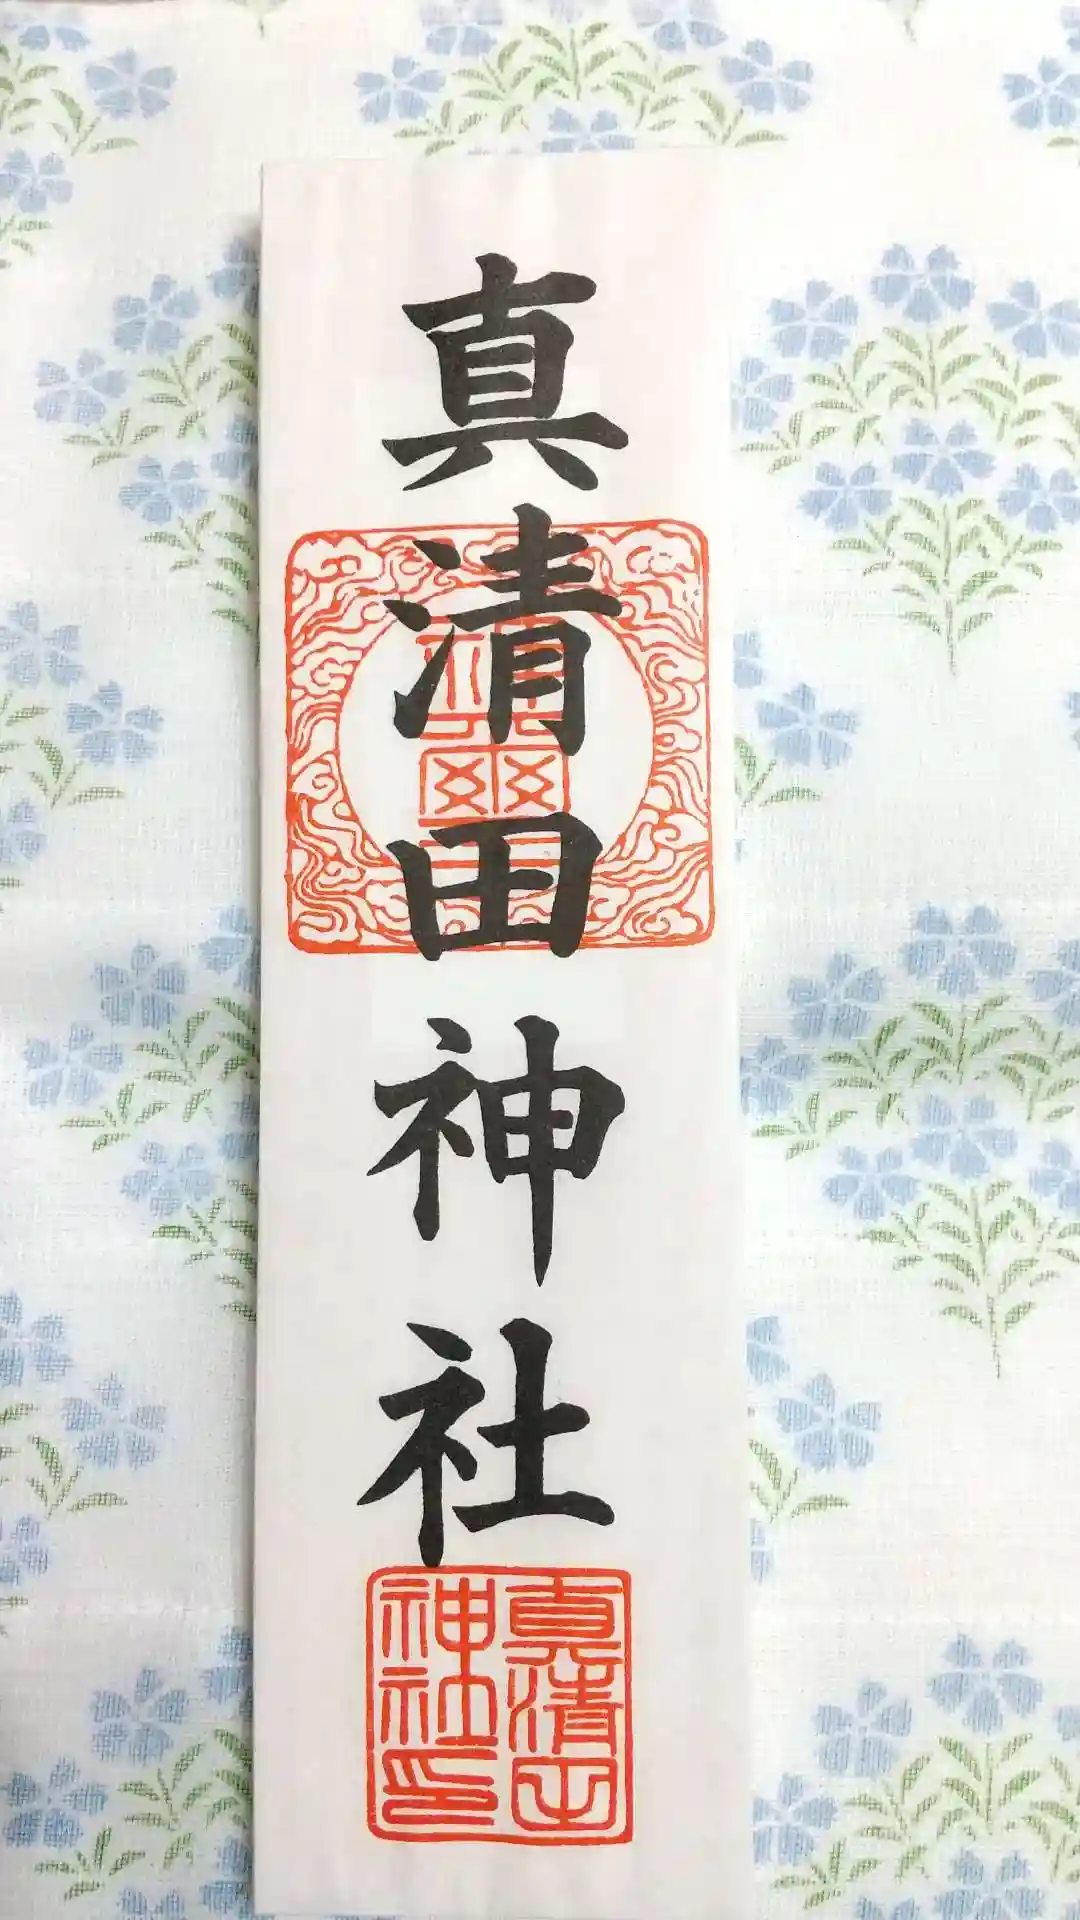 真清田神社
神璽
真清田
神社印